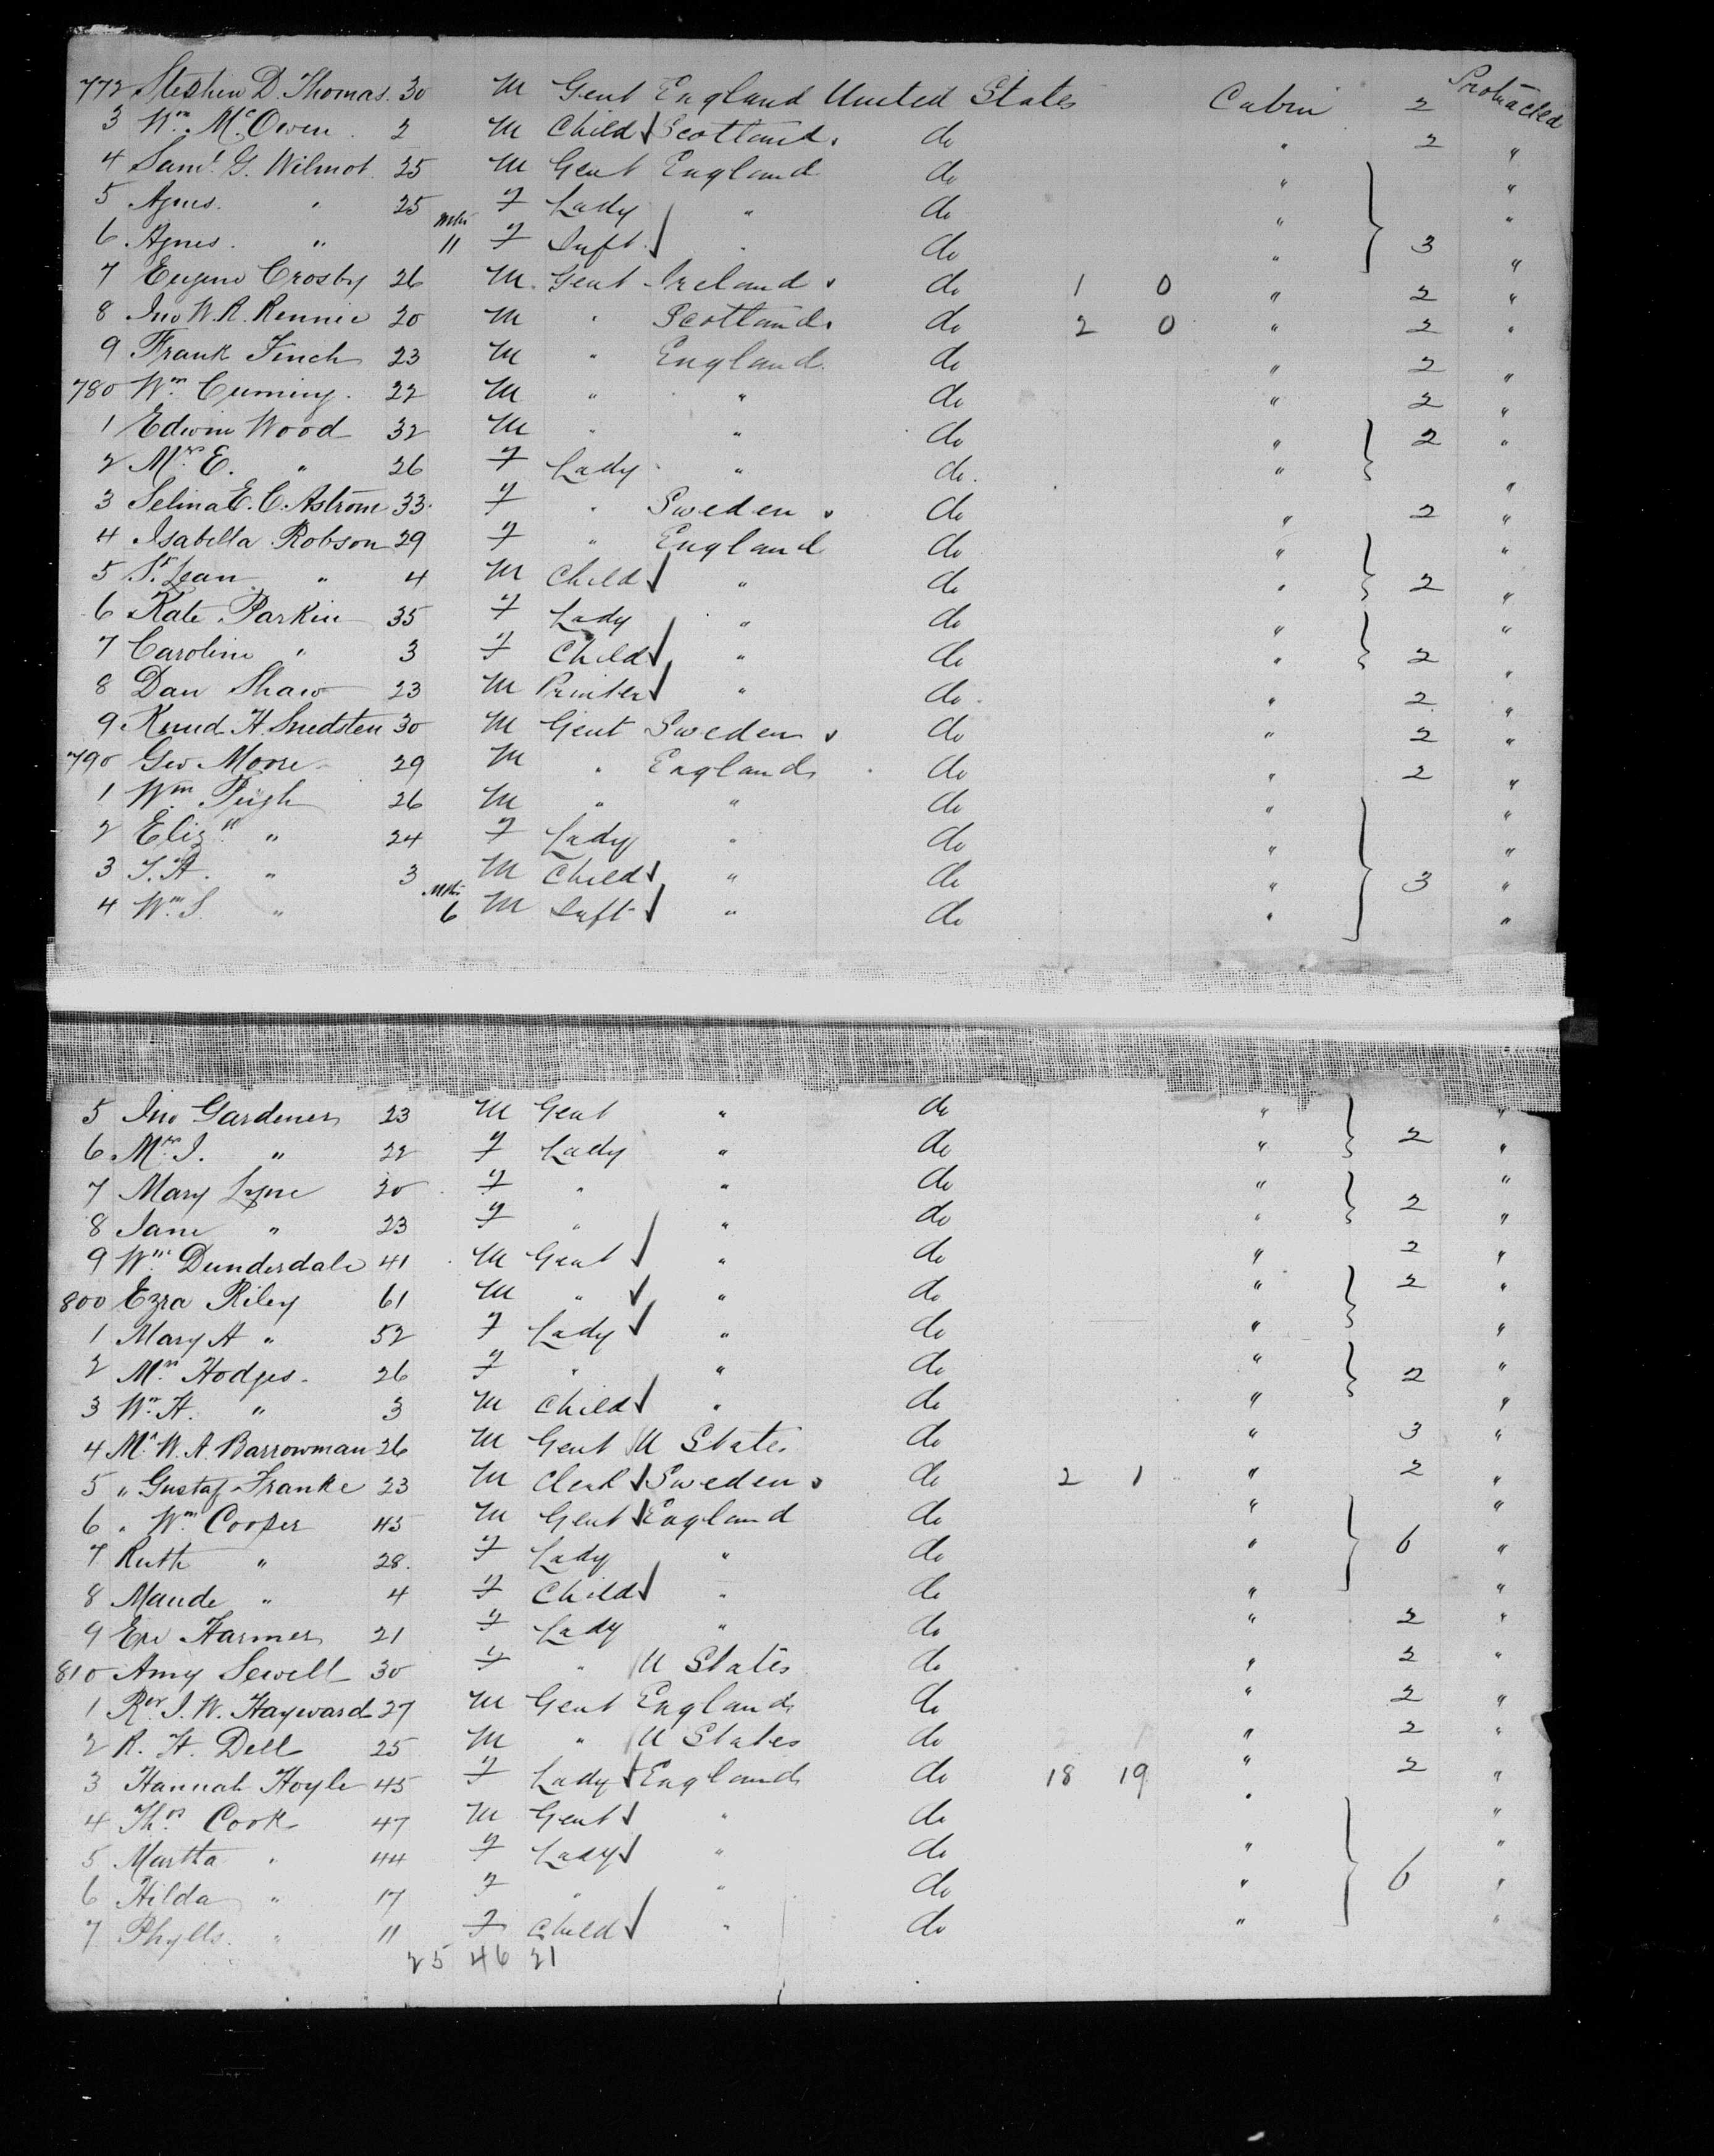 772 Stephen D. Thomas. 30 M Gent England United States Cabin 2 Protracted
3 Wm. McOwen. 2 M Child Scotland. do " 2 "
4 Saml. G. Wilmot. 25 M Gent England do " "
5 Agnes. " 25 F Lady " do " "
6 Agnes. " mths 11 F Inft. " do " 3 "
7 Eugene Crosby 26 M. Gent Ireland do 1 0 " 2 "
8 Jno W. R. Rennie 20 M " Scotland do 2 0 " 2 "
9 Frank Finch 23 M " England do " 2 "
780 Wm. Cuming. 22 M " " do " 2 "
1 Edwin Wood 32 M " " do " 2 "
2 Mrs E. " 26 F Lady " do. " "
3 Selina E. C. Astrom 33 F " Sweden do " 2 "
4 Isabella Robson 29 F " England do " "
5 St. Jean " 4 M Child " do " 2 "
6 Kate Parkin 35 F Lady " do " "
7 Caroline " 3 F Child " do " 2 "
8 Dan Shaw 23 M Printer " do " 2 "
9 Knud H. 30 M Gent Sweden do " 2 "
790 Geo Moore 29 M " England do " 2 "
1 Wm Pugh 26 M " " do " "
2 Elizth " 24 F Lady " do " "
3 T. H. " 3 M Child " do " 3 "
4 Wm S. " mths 6 M Inft " do " "
5 Jno Gardener 23 M Gent " do " "
6 Mrs J. " 22 F Lady " do " 2 "
7 Mary Lyne 30 F " " do " "
8 Jane " 23 F " " do " 2 "
9 Wm Dunderdale 41 M Gent " do " 2 "
800 Ezra Riley 61 M " " do " 2 "
1 Mary A " 52 F Lady " do " "
2 Mrs Hodges. 26 F " " do " "
3 Wm. H. " 3 M Child " do " 2 "
4 Mr. W. A. Barrowman 26 M Gent U States do " 3 "
5 " Gustaf Franke 23 M Clerk Sweden do 2 1 " 2 "
6 " Wm Cooper 45 M Gent England do " "
7 Ruth " 28. F Lady " do " 6 "
8 Maude " 4 F Child " do " "
9 Farmer 21 F Lady " do " 2 "
810 Amy Sewell 30 F " U States do " 2 "
1 Rev J. W. Hayward 27 M Gent England do " 2 "
2 R. H. Dell 25 M " U States do " 2 "
3 Hannah Hoyle 45 F Lady England do 18 19 " 2 "
4 Thos. Cook 47 M Gent " do " "
5 Martha " 44 F Lady " do " "
6 Hilda " 17 F " " do " 6 "
7 Phylls. " 11 F Child " do " "
25 46 21